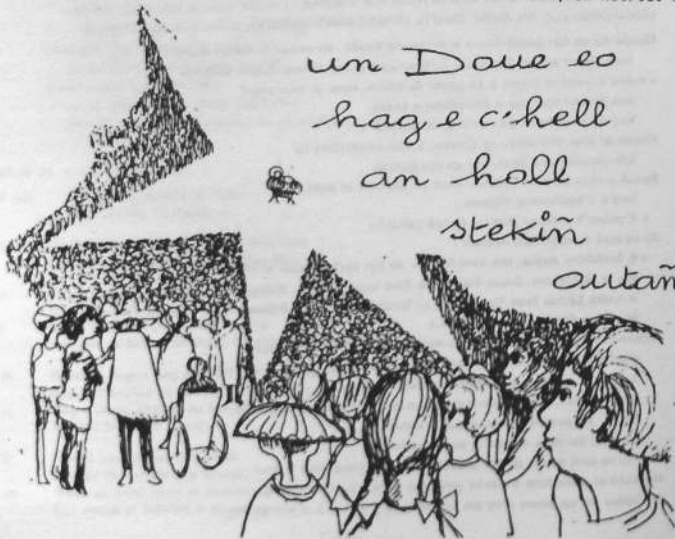 un Doue eo
hag e c'hell
an holl
stekiñ
outañ